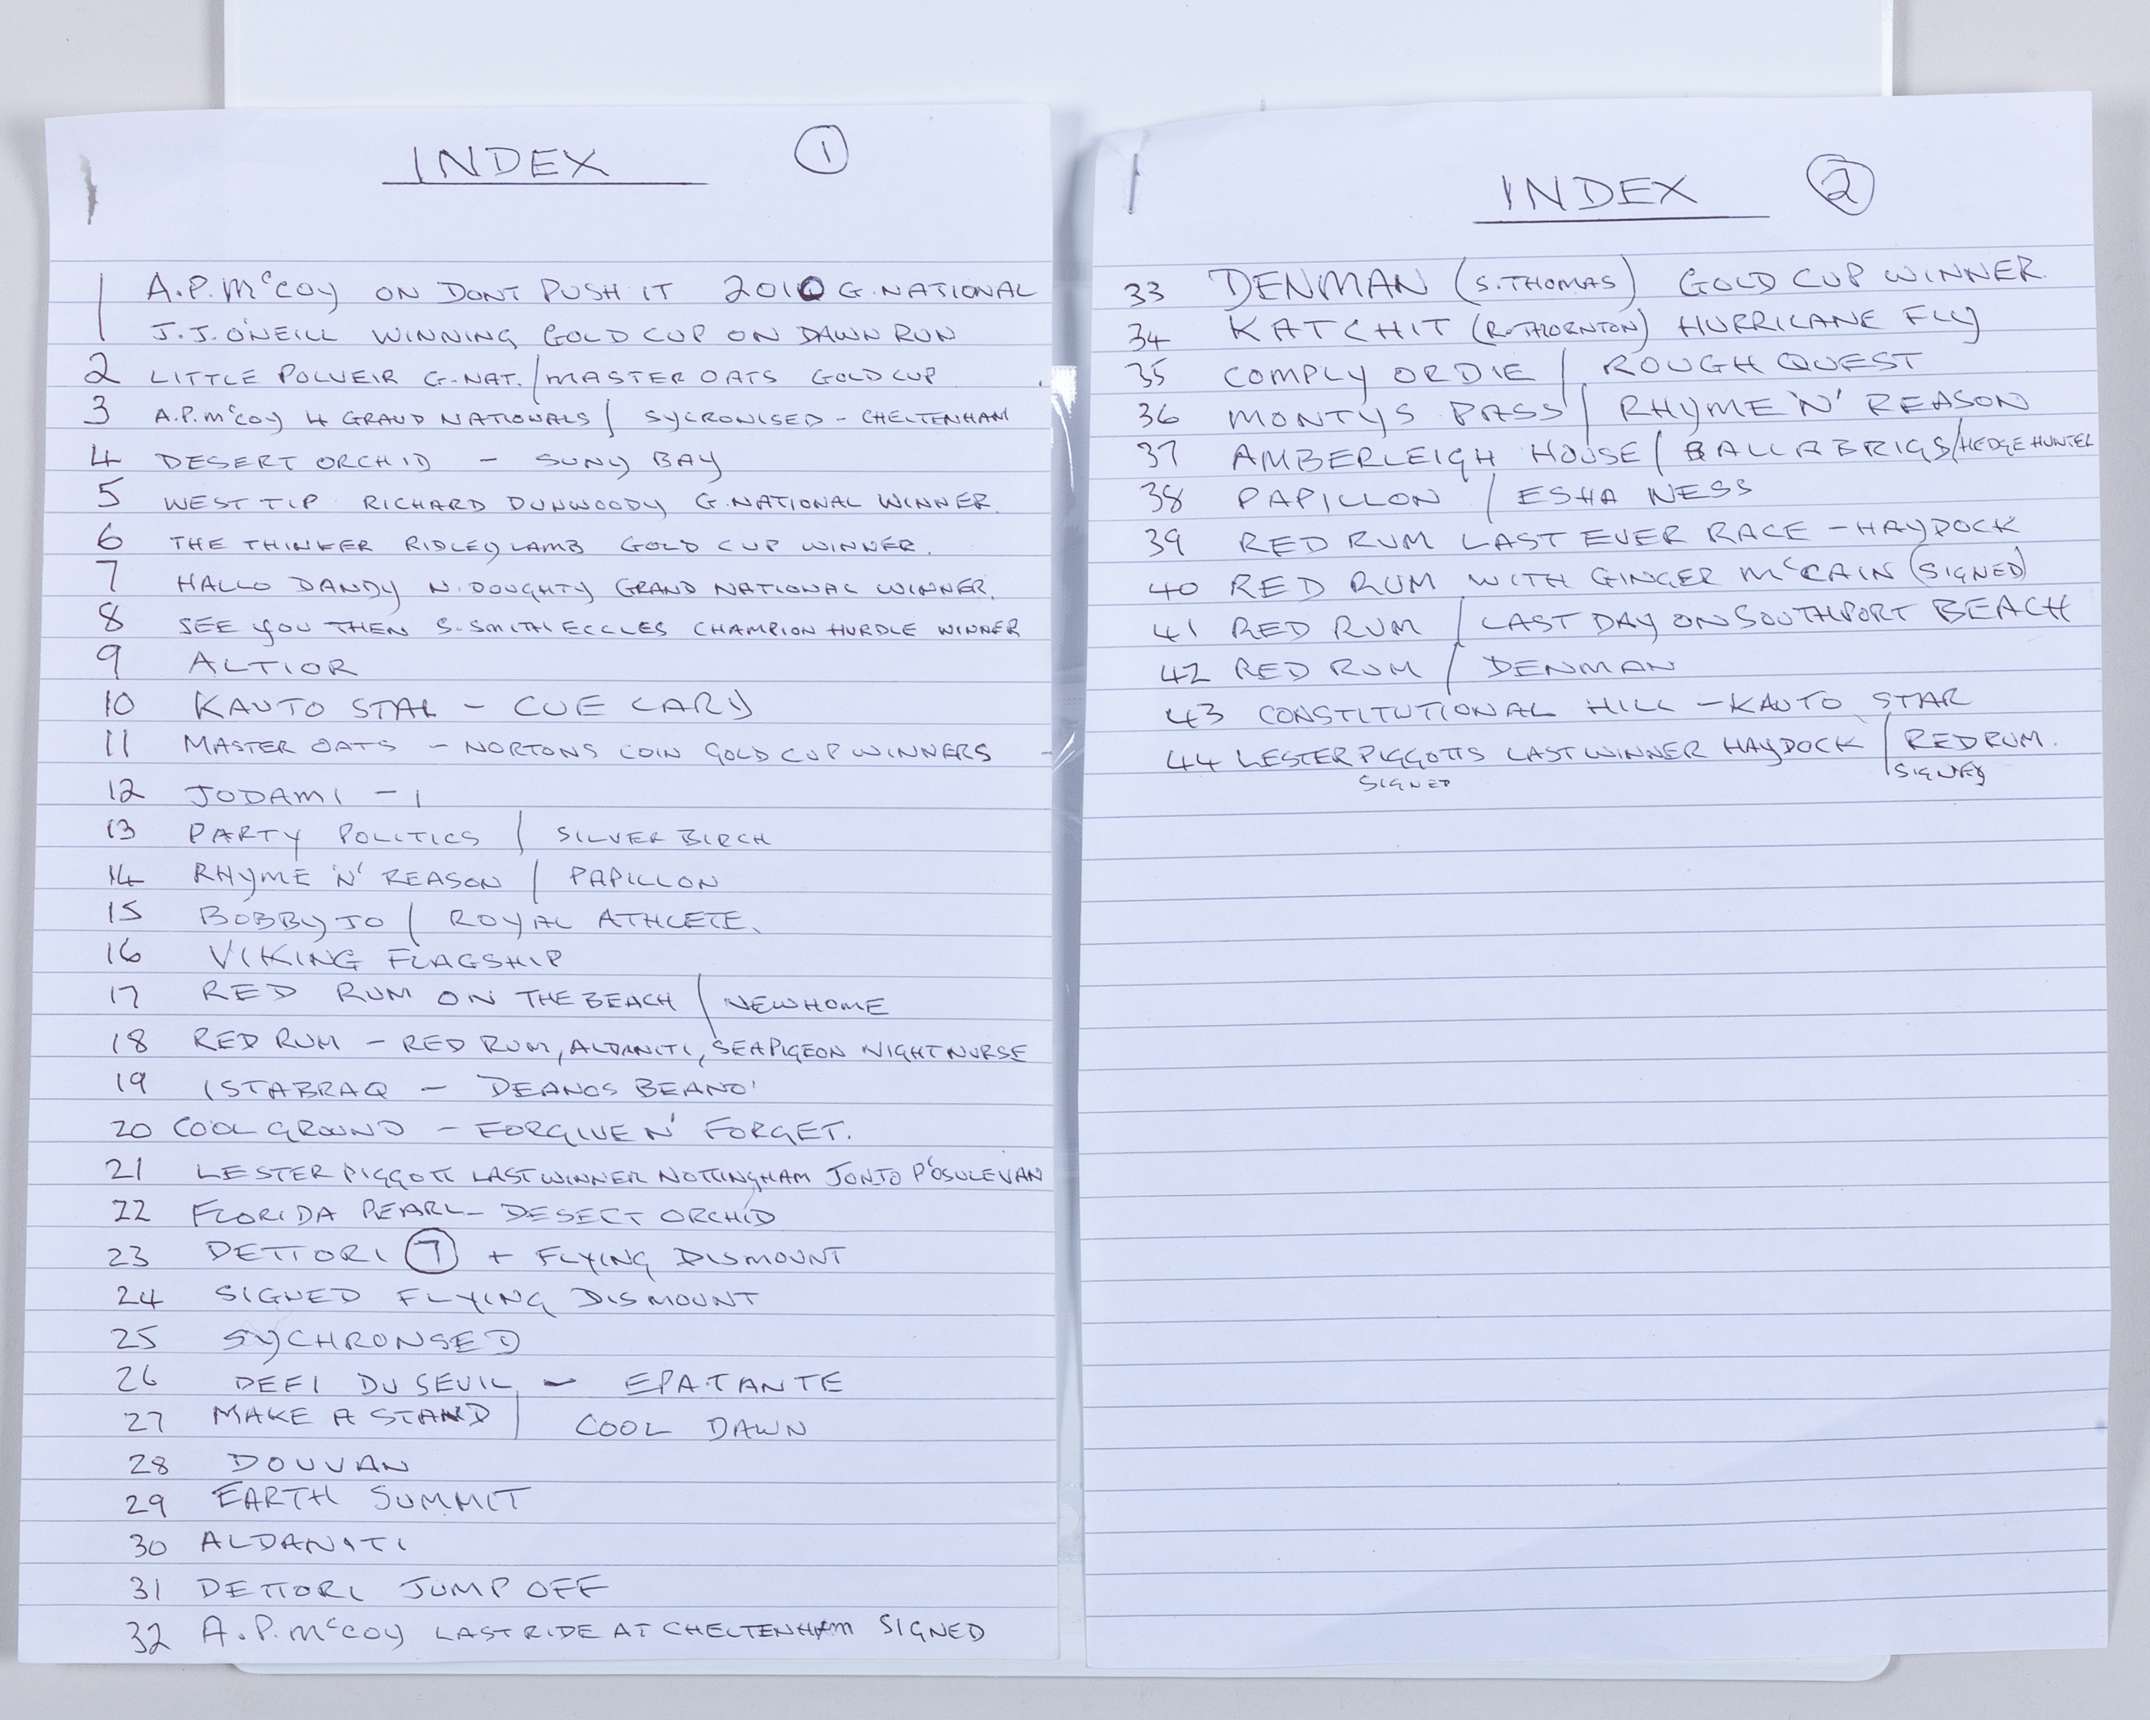 INDEX 1
1 A.P. McCOY ON DONT PUSH IT 2010 G. NATIONAL
J.J. O'NEILL WINNING GOLD CUP ON DAWN RUN
2 LITTLE POLVEIR G-NAT. / MASTER OATS GOLD CUP
3 A.P. McCOY 4 GRAND NATIONALS / SYCRONISED - CHELTENHAM
4 DESERT ORCHID - SUNY BAY
5 WEST TIP RICHARD DUNWOODY G. NATIONAL WINNER.
6 THE THINKER RIDLEY LAMB GOLD CUP WINNER.
7 HALLO DANDY N. DOUGHTY GRAND NATIONAL WINNER.
8 SEE YOU THEN S. SMITH ECCLES CHAMPION HURDLE WINNER
9 ALTIOR
10 KAUTO STAR - CUE CARD
11 MASTER OATS - NORTONS COIN GOLD CUP WINNERS
12 JODAMI - 1
13 PARTY POLITICS / SILVER BIRCH
14 RHYME 'N' REASON / PAPILLON
15 BOBBY JO / ROYAL ATHLETE.
16 VIKING FLAGSHIP
17 RED RUM ON THE BEACH / NEW HOME
18 RED RUM - RED RUM, ALDANITI, SEA PIGEON NIGHT NURSE
19 ISTABRAQ - DEANOS BEANO'
20 COOL GROUND - FORGIVE N' FORGET.
21 LESTER PIGGOTT LAST WINNER NOTTINGHAM JONJO P'OSULEVAN
22 FLORIDA PEARL - DESECT ORCHID
23 DETTORI 7 + FLYING DISMOUNT
24 SIGNED FLYING DISMOUNT
25 SYCHRONSED
26 DEFI DU SEUIL - EPATANTE
27 MAKE A STAND / COOL DAWN
28 DOUVAN
29 EARTH SUMMIT
30 ALDANITI
31 DETTORI JUMP OFF
32 A.P. McCOY LAST RIDE AT CHELTENHAM SIGNED
INDEX 2
33 DENMAN (S. THOMAS) GOLD CUP WINNER.
34 KATCHIT (R. THORNTON) HURRICANE FLY
35 COMPLY OR DIE / ROUGH QUEST
36 MONTYS PASS / RHYME 'N' REASON
37 AMBERLEIGH HOUSE / BALLABRIGS / HEDGE HUNTER
38 PAPILLON / ESHA NESS
39 RED RUM LAST EVER RACE - HAYDOCK
40 RED RUM WITH GINGER McCAIN (SIGNED)
41 RED RUM / LAST DAY ON SOUTHPORT BEACH
42 RED RUM / DENMAN
43 CONSTITUTIONAL HILL - KAUTO STAR
44 LESTER PIGGOTTS LAST WINNER HAYDOCK / RED RUM.
SIGNED SIGNED